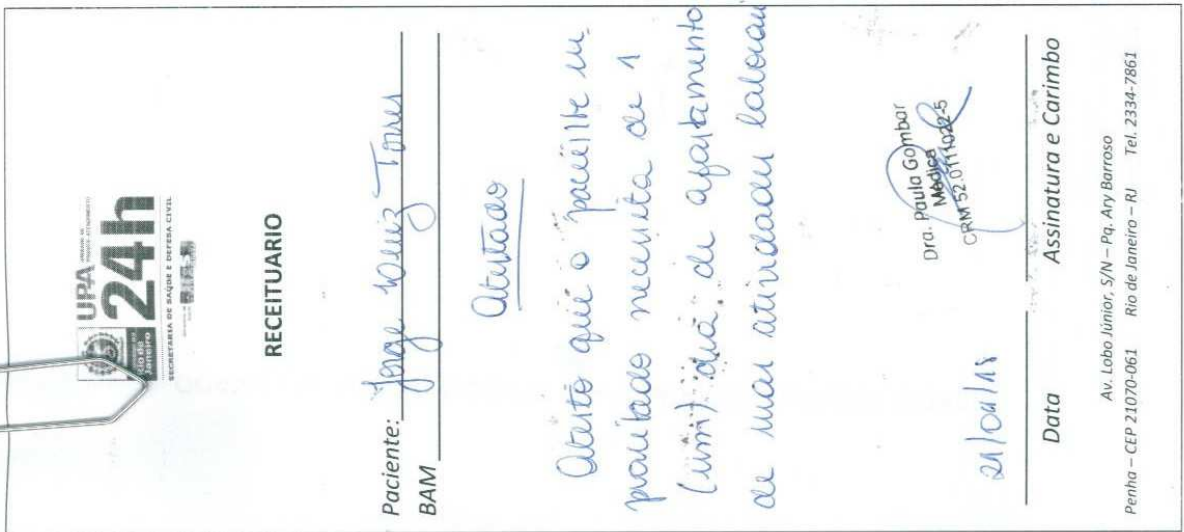 UPA UNIDADE DE PRONTO ATENDIMENTO
24h
SECRETARIA DE SAÚDE E DEFESA CIVIL
RECEITUARIO
Paciente: Jorge Luiz Torres
BAM
Atestado
Atesto que o paciente su
pracitado necessita de 1
(um) dia de afastamento
de suas atividades laborais
Dra. Paula Gombar
Médica
CRM 52.0111022-5
21/04/18
Data
Assinatura e Carimbo
Av. Lobo Júnior, S/N – Pq. Ary Barroso
Penha – CEP 21070-061 Rio de Janeiro – RJ Tel. 2334-7861